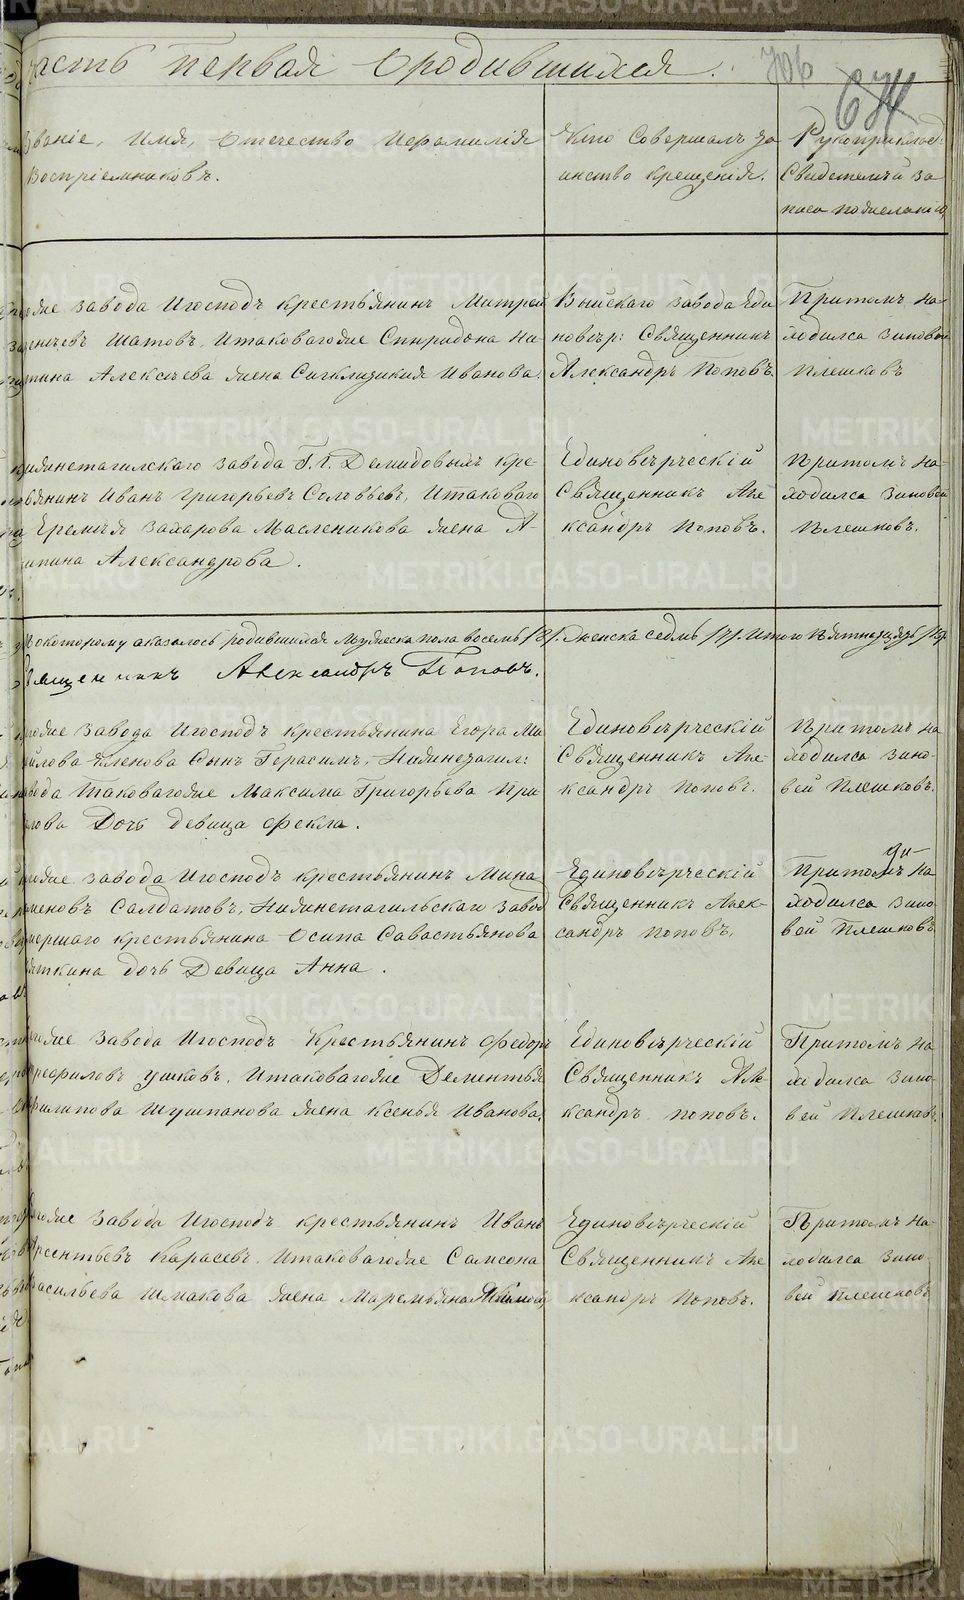 часть первая о родившихся.
706
Званіе, Имя, Отечество Ифамилія
Воспріемниковъ.
Кто Совершалъ та
инство крещенія.
Рукоприклад:
Свидетелей за
писи пожеланію
завода Игосподъ крестьянинъ Митрей
Шатовъ, Итаковагоже Спиридона Ни-
Алексѣева жена Сигклидикия Иванова.
Выйскаго завода Еди
новѣр: Священникъ
Александръ Поповъ.
Притомъ на-
ходился Зиновей
Плешковъ
завода Г.Г. Демидовымъ кре-
стьянинъ Иванъ Григорьевъ Соловьевъ, Итаковаго
Еремѣя Захарова Масленикова жена А-
Александрова.
Единовѣрческій
Священникъ Але-
ксандръ Поповъ.
Притомъ на-
ходился Зиновей
Плешковъ.
оказалось родившихся Мужеска пола восемь /8/. Женска седмь /7/. Итого Пятнадцать /15/
Священникъ Александръ Поповъ.
завода Игосподъ крестьянина Егора Ми
хайлова Кленова Сынъ Герасимъ, Нижнетагил:
завода Таковагоже Максима Григорьева При
лова Дочь девица Фекла.
Единовѣрческій
Священникъ Але-
ксандръ Поповъ.
Притомъ на
ходился Зино-
вей Плешковъ.
завода Игосподъ крестьянинъ Мина
Салдатовъ, Нижнетагильскаго завод
умершаго крестьянина Осипа Савастьянова
дочь Девица Анна.
Единовѣрческій
Священникъ Алек-
сандръ Поповъ,
Притомъ на
ходился Зино
вей Плешковъ
завода Игосподъ Крестьянинъ Федоръ
Ушковъ, Итаковагоже Дементья
Филипова Шушпанова жена Ксенья Иванова.
Единовѣрческій
Священникъ Але
ксандръ Поповъ.
Притомъ на
ходился Зино-
вей Плешковъ.
завода Игосподъ крестьянинъ Иванъ
Карасевъ, Итаковагоже Самсона
Васильева Шмакова жена Маремьяна
Единовѣрческій
Священникъ Але
ксандръ Поповъ.
Притомъ на-
ходился Зино-
вей Плешковъ
METRIKI.GASO-URAL.RU